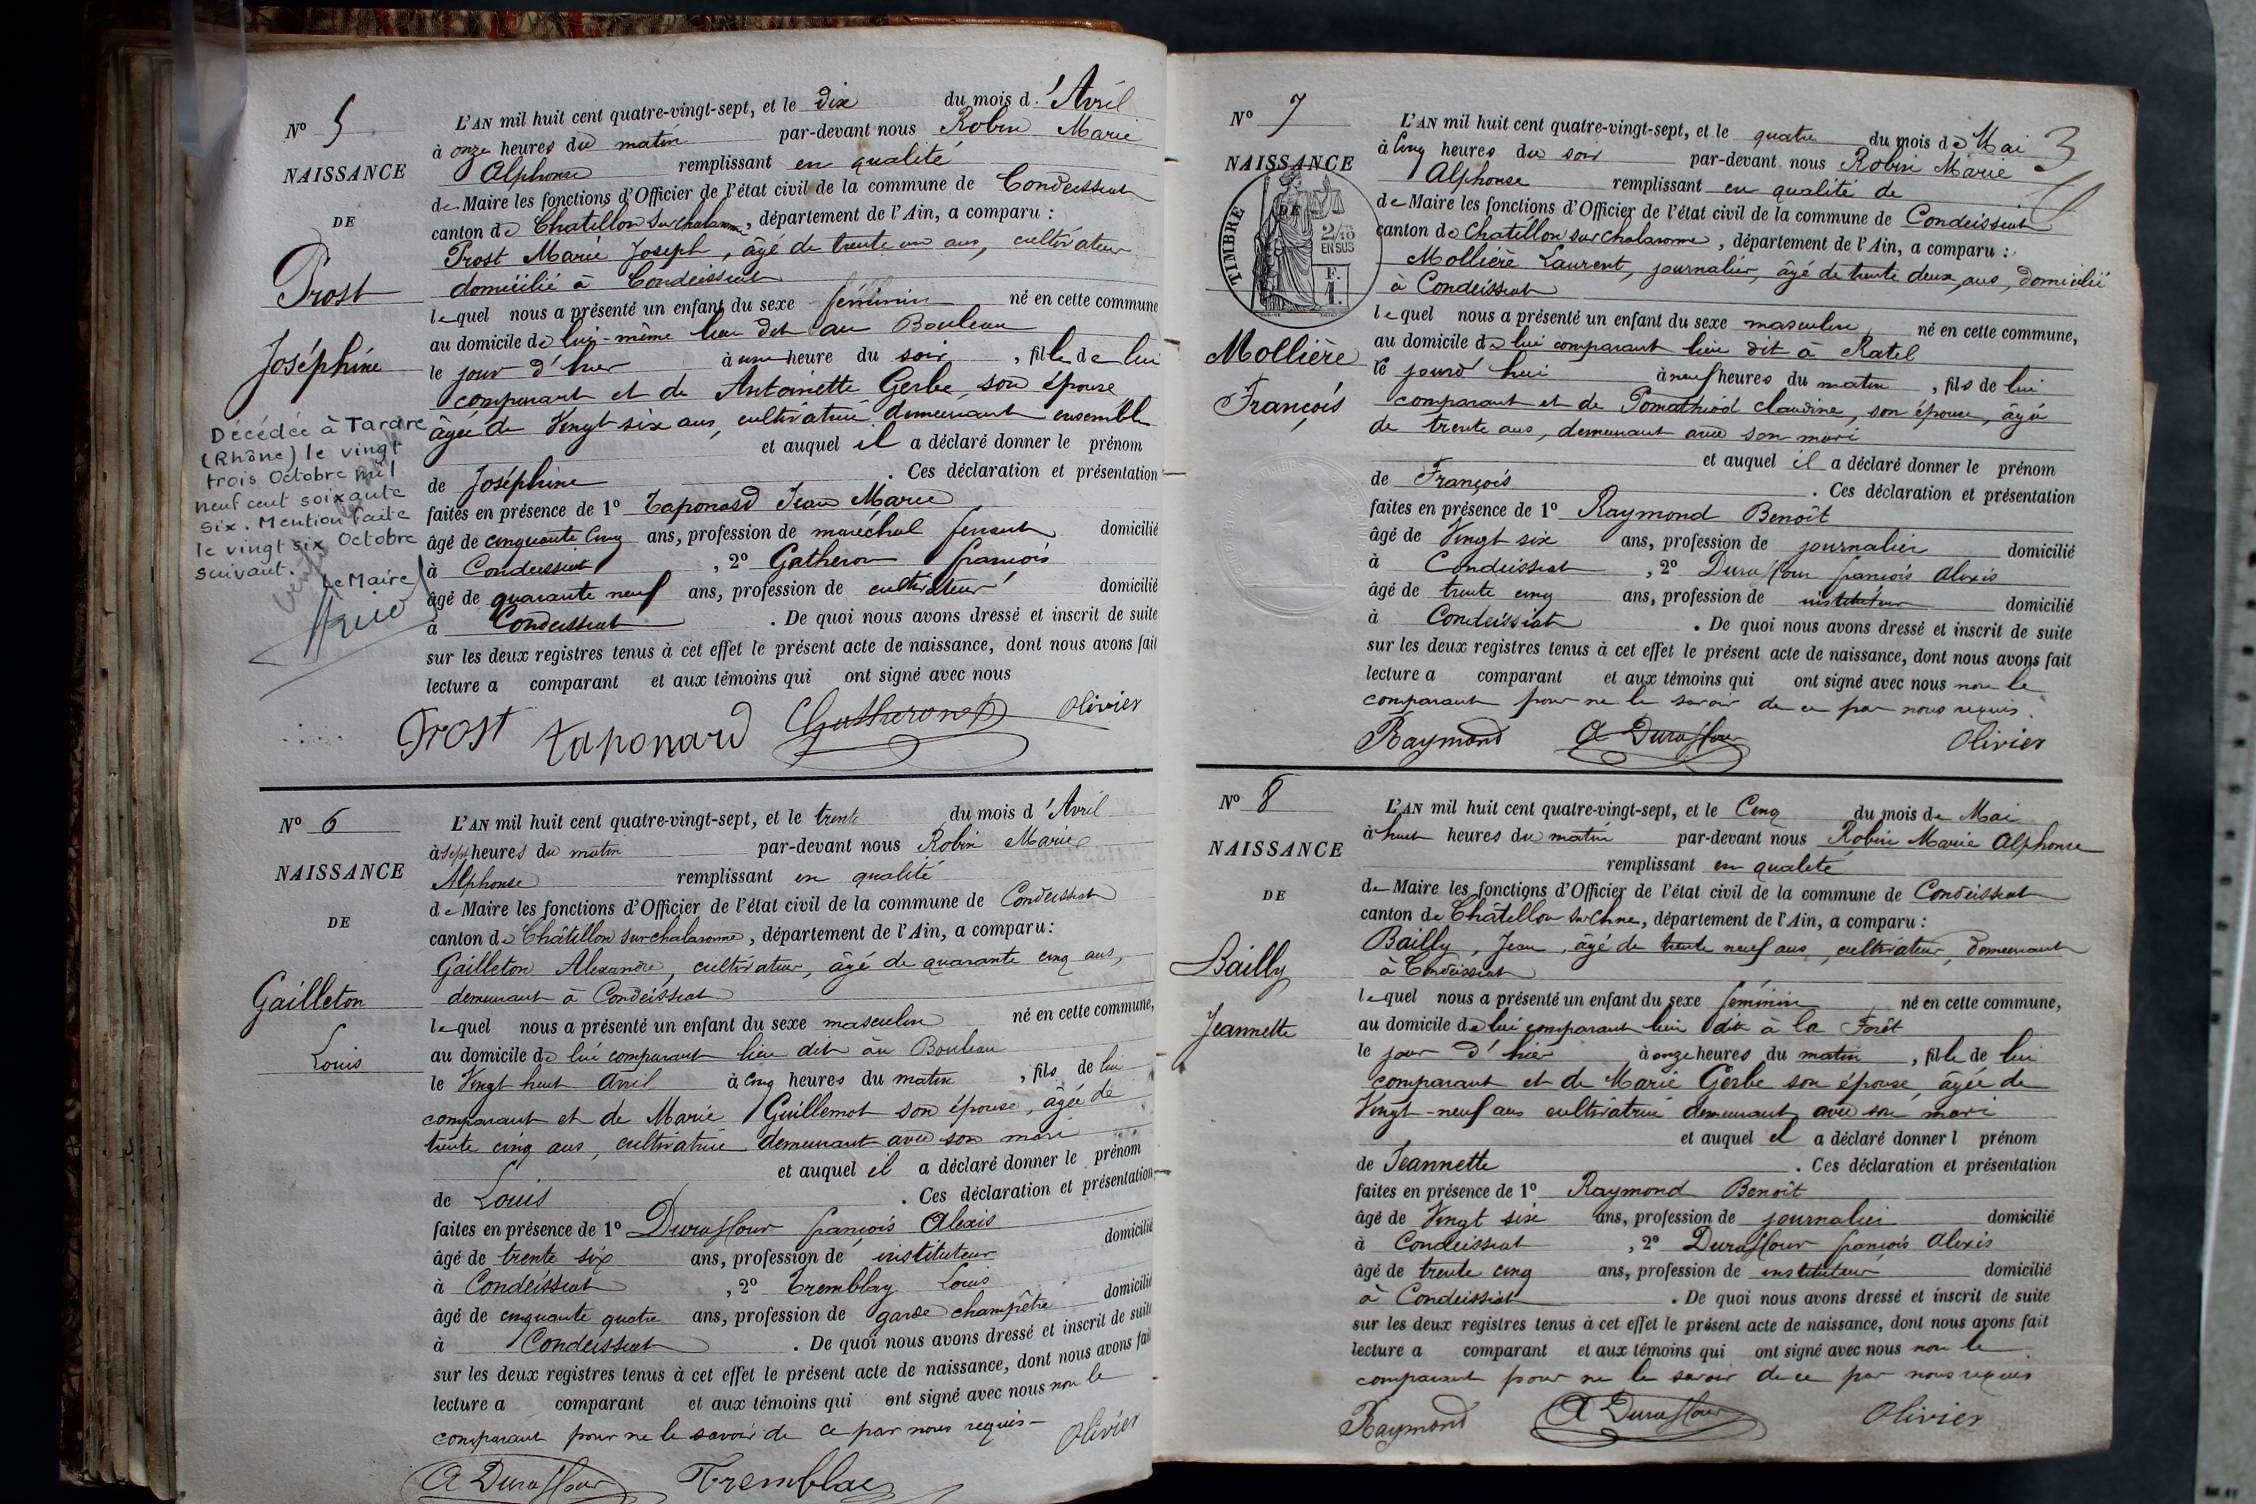 Nº 5
NAISSANCE
DE
Prost
Joséphine
Décédée à Tarare
(Rhône) le vingt
trois Octobre mil
neuf cent soixante
six. Mention faite
le vingt six Octobre
suivant.
Le Maire
L'AN mil huit cent quatre-vingt-sept, et le dix du mois d'Avril
à onze heures du matin par-devant nous Robin Marie
Alphonse remplissant en qualité
de Maire les fonctions d'Officier de l'état civil de la commune de Condeissiat
canton de Chatillon sur Chalaronne, département de l'Ain, a comparu :
Prost Marie Joseph, âgé de trente un ans, cultivateur
domicilié à Condeissiat
lequel nous a présenté un enfant du sexe féminin né en cette commune
au domicile de lui-même lieu dit au Bouleau
le jour d'hier à une heure du soir, fille de lui
comparant et de Antoinette Gerbe, son épouse
âgée de Vingt six ans, cultivatrice demeurant ensemble
et auquel il a déclaré donner le prénom
de Joséphine. Ces déclaration et présentation
faites en présence de 1º Taponard Jean Marie
âgé de cinquante cinq ans, profession de maréchal ferrant domicilié
à Condeissiat, 2º Gatheron françois
âgé de quarante neuf ans, profession de cultivateur domicilié
à Condeissiat. De quoi nous avons dressé et inscrit de suite
sur les deux registres tenus à cet effet le présent acte de naissance, dont nous avons fait
lecture a comparant et aux témoins qui ont signé avec nous
Prost taponard Gatheron Olivier
Nº 6
NAISSANCE
DE
Gailleton
Louis
L'AN mil huit cent quatre-vingt-sept, et le trente du mois d'Avril
à sept heures du matin par-devant nous Robin Marie
Alphonse remplissant en qualité
de Maire les fonctions d'Officier de l'état civil de la commune de Condeissiat
canton de Châtillon sur chalaronne, département de l'Ain, a comparu :
Gailleton Alexandre, cultivateur, âgé de quarante cinq ans,
demeurant à Condeissiat
lequel nous a présenté un enfant du sexe masculin né en cette commune,
au domicile de lui comparant lieu dit au Bouleau
le Vingt huit avril à cinq heures du matin, fils de lui
comparant et de Marie Guillemot son épouse, âgée de
trente cinq ans, cultivatrice demeurant avec son mari
et auquel il a déclaré donner le prénom
de Louis. Ces déclaration et présentation
faites en présence de 1º Duraffour françois Alexis
âgé de trente six ans, profession de instituteur domicilié
à Condeissiat, 2º Tremblay Louis
âgé de cinquante quatre ans, profession de garde champêtre domicilié
à Condeissiat. De quoi nous avons dressé et inscrit de suite
sur les deux registres tenus à cet effet le présent acte de naissance, dont nous avons fait
lecture a comparant et aux témoins qui ont signé avec nous non le
comparant pour ne le savoir de ce par nous requis -
A Duraffour Tremblay Olivier
3
Nº 7
NAISSANCE
DE
TIMBRE
2/10
EN SUS
Mollière
François
L'AN mil huit cent quatre-vingt-sept, et le quatre du mois de Mai
à cinq heures du soir par-devant nous Robin Marie
Alphonse remplissant en qualité de
de Maire les fonctions d'Officier de l'état civil de la commune de Condeissiat
canton de Chatillon sur chalaronne, département de l'Ain, a comparu :
Mollière Laurent, journalier, âgé de trente deux ans, domicilié
à Condeissiat
lequel nous a présenté un enfant du sexe masculin né en cette commune,
au domicile de lui comparant lieu dit à Ratel
le jourd'hui à neuf heures du matin, fils de lui
comparant et de Pomathiod claudine, son épouse, âgée
de trente ans, demeurant avec son mari
et auquel il a déclaré donner le prénom
de François. Ces déclaration et présentation
faites en présence de 1º Raymond Benoît
âgé de Vingt six ans, profession de journalier domicilié
à Condeissiat, 2º Duraffour françois Alexis
âgé de trente cinq ans, profession de instituteur domicilié
à Condeissiat. De quoi nous avons dressé et inscrit de suite
sur les deux registres tenus à cet effet le présent acte de naissance, dont nous avons fait
lecture a comparant et aux témoins qui ont signé avec nous non le
comparant pour ne le savoir de ce par nous requis.
Raymond A Duraffour Olivier
Nº 8
NAISSANCE
DE
Bailly
Jeannette
L'AN mil huit cent quatre-vingt-sept, et le Cinq du mois de Mai
à huit heures du matin par-devant nous Robin Marie Alphonse
remplissant en qualité
de Maire les fonctions d'Officier de l'état civil de la commune de Condeissiat
canton de Châtillon sur Chne, département de l'Ain, a comparu :
Bailly, Jean, âgé de trente neuf ans, cultivateur, demeurant
à Condeissiat
lequel nous a présenté un enfant du sexe féminin né en cette commune,
au domicile de lui comparant lieu dit à la Forêt
le jour d'hier à onze heures du matin, fille de lui
comparant et de Marie Gerbe son épouse, âgée de
Vingt-neuf ans cultivatrice demeurant avec son mari
et auquel il a déclaré donner l prénom
de Jeannette. Ces déclaration et présentation
faites en présence de 1º Raymond Benoît
âgé de Vingt six ans, profession de journalier domicilié
à Condeissiat, 2º Duraffour françois Alexis
âgé de trente cinq ans, profession de instituteur domicilié
à Condeissiat. De quoi nous avons dressé et inscrit de suite
sur les deux registres tenus à cet effet le présent acte de naissance, dont nous avons fait
lecture a comparant et aux témoins qui ont signé avec nous non le
comparant pour ne le savoir de ce par nous requis
Raymond A Duraffour Olivier